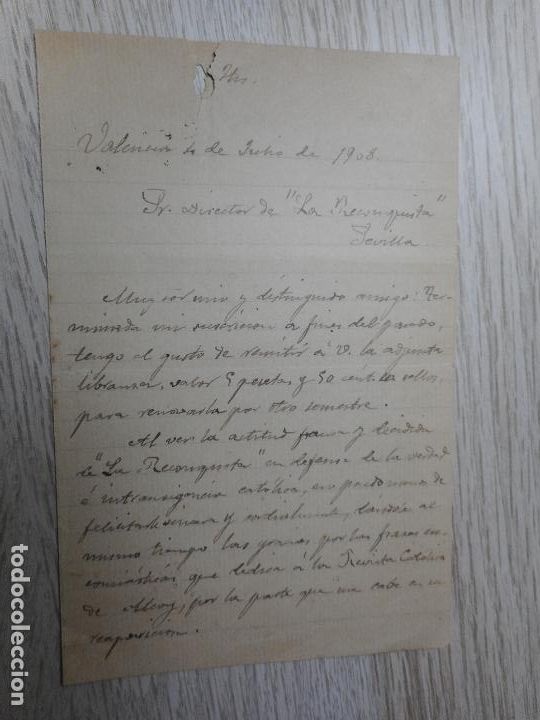 Jhs.
Valencia 4 de Julio de 1908.
Sr. Director de "La Reconquista"
Sevilla
Muy Sor mio y distinguido amigo: Ter-
minada mi suscricion a fines del pasado,
tengo el gusto de remitir á V. la adjunta
libranza, valor 5 pesetas y 50 cent. en sellos
para renovarla por otro semestre.
Al ver la actitud franca y decidida
de "La Reconquista" en defensa de la verdad
é intransigencia católica, no puedo menos de
felicitarle sincera y cordialmente, dándole al
mismo tiempo las gracias por las frases en-
comiásticas que dedica á la Revista Católica
de Alcoy, por la parte que me cabe en su
reaparicion.
todocoleccion